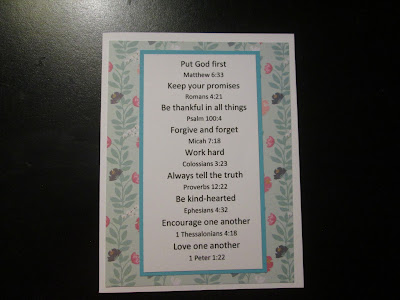 Put God first
Matthew 6:33
Keep your promises
Romans 4:21
Be thankful in all things
Psalm 100:4
Forgive and forget
Micah 7:18
Work hard
Colossians 3:23
Always tell the truth
Proverbs 12:22
Be kind-hearted
Ephesians 4:32
Encourage one another
1 Thessalonians 4:18
Love one another
1 Peter 1:22